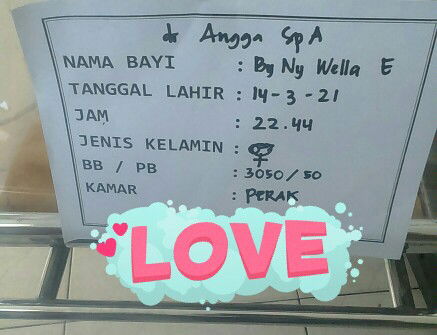 dr Angga SpA
NAMA BAYI : By Ny Wella E
TANGGAL LAHIR : 14-3-21
JAM : 22.44
JENIS KELAMIN : ♀
BB / PB : 3050/50
KAMAR : PERAK
LOVE